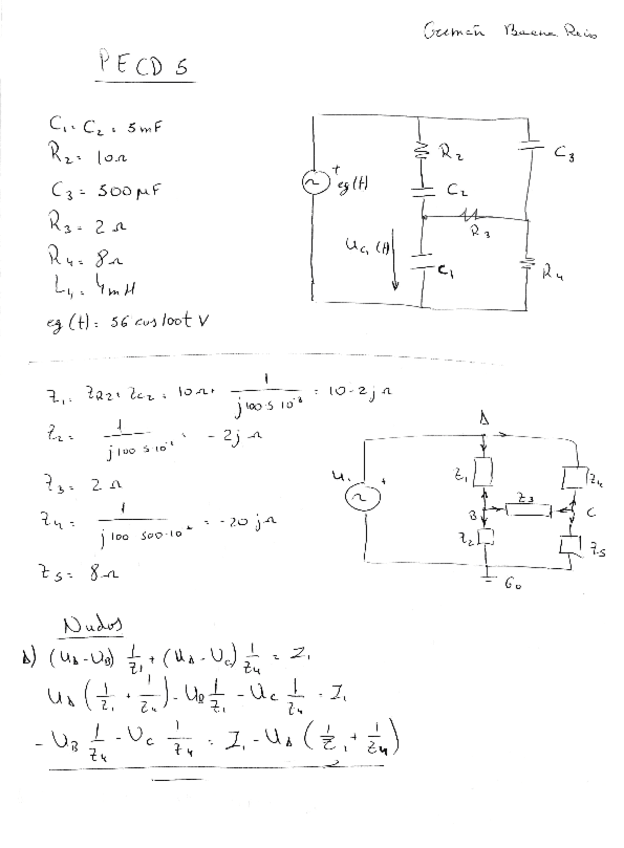 Germán Baena Reiss
PECD 5
C₁ = C₂ = 5mF
R₂ = 10Ω
C₃ = 500μF
R₃ = 2Ω
R₄ = 8Ω
L₁ = 4mH
eg(t) = 56 cos 100t V
R₂
C₃
+ eg(t)
C₂
R₃
U_C₁(t)
C₁
R₄
Z₁ = Z_R2 + Z_C2 = 10Ω + 1/(j100·5·10⁻³) = 10-2jΩ
Z₂ = 1/(j100·5·10⁻³) = -2jΩ
Z₃ = 2Ω
Z₄ = 1/(j100·500·10⁻⁶) = -20jΩ
Z₅ = 8Ω
A
U₁ +
Z₁
Z₄
Z₃
B
C
Z₂
Z₅
G₀
Nudos
A) (U_A - U_B) 1/Z₁ + (U_A - U_C) 1/Z₄ = I₁
U_A (1/Z₁ + 1/Z₄) - U_B 1/Z₁ - U_C 1/Z₄ = I₁
- U_B 1/Z₄ - U_C 1/Z₄ = I₁ - U_A (1/Z₁ + 1/Z₄)